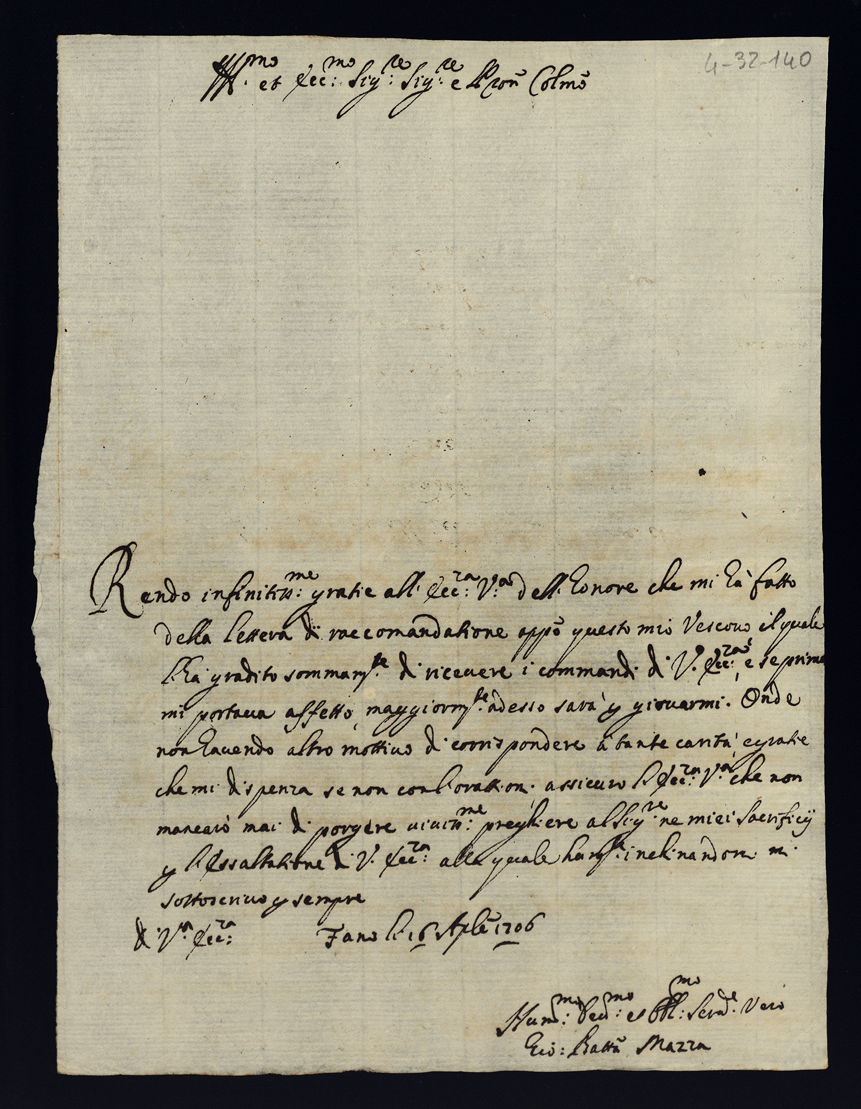 4-32-140
Ill:mo et Ecc:mo Sig:re Sig:re e Pron Colmo
Rendo infinitiss:me gratie all' Ecc:za V:a dell' honore che mi hà fatto
della lettera di raccomandatione appo questo mio Vescovo il quale
l'hà gradito sommam:te di ricevere i commandi di V.a Ecc:za, e se prima
mi portava affetto, maggiorm:te adesso sarà p giovarmi. Onde
non havendo altro mottivo di corrispondere à tante carità, e gratie
che mi dispenza se non con l'orationi assicuro l'Ecc:za V:a che non
mancarò mai di porgere viviss:me preghiere al Sig:re ne miei Sacrificij
p l'Essaltatione di V. Ecc:za alla quale hum:te inchinandomi mi
sottoscrivo p sempre
di V:a Ecc:za Fano li 16 Aple 1706
Hum:mo Dev:mo et Obl:mo Serv:e Vero
Gio: Batta Mazza